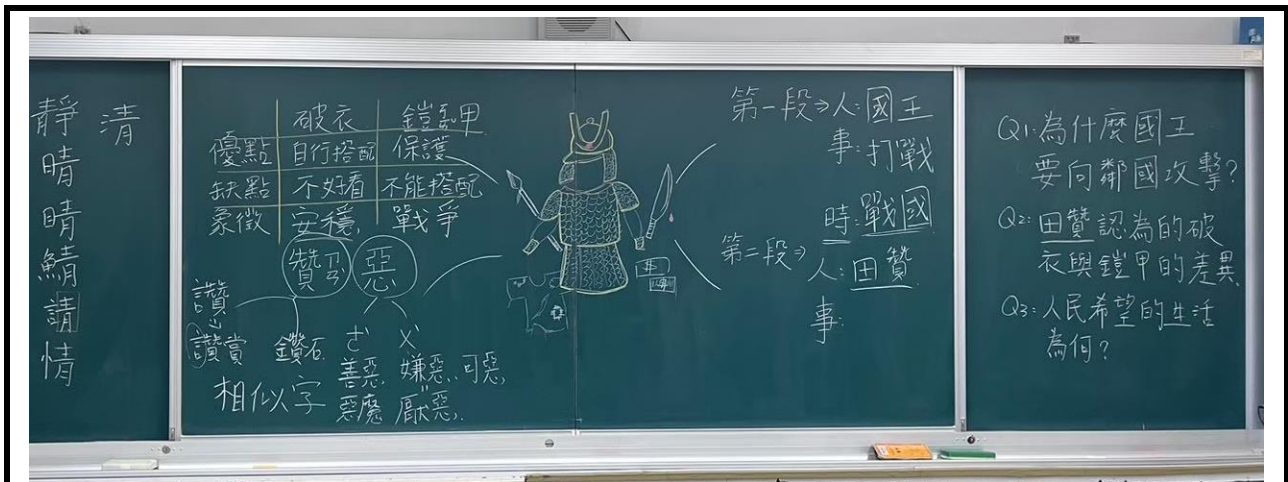 靜 清
晴
睛
鯖
請
情
破衣 鎧甲
優點 自行搭配 保護
缺點 不好看 不能搭配
象徵 安穩 戰爭
贊 ㄗㄢˋ 惡
讚
讚賞 鑽石 ㄜˋ ㄨˋ
善惡 嫌惡、可惡
惡魔 厭惡
相似字
第一段⇒人:國王
事:打戰
時:戰國
第二段⇒
人:田贊
事:
Q1:為什麼國王
要向鄰國攻擊?
Q2:田贊認為的破
衣與鎧甲的差異
Q3:人民希望的生活
為何?